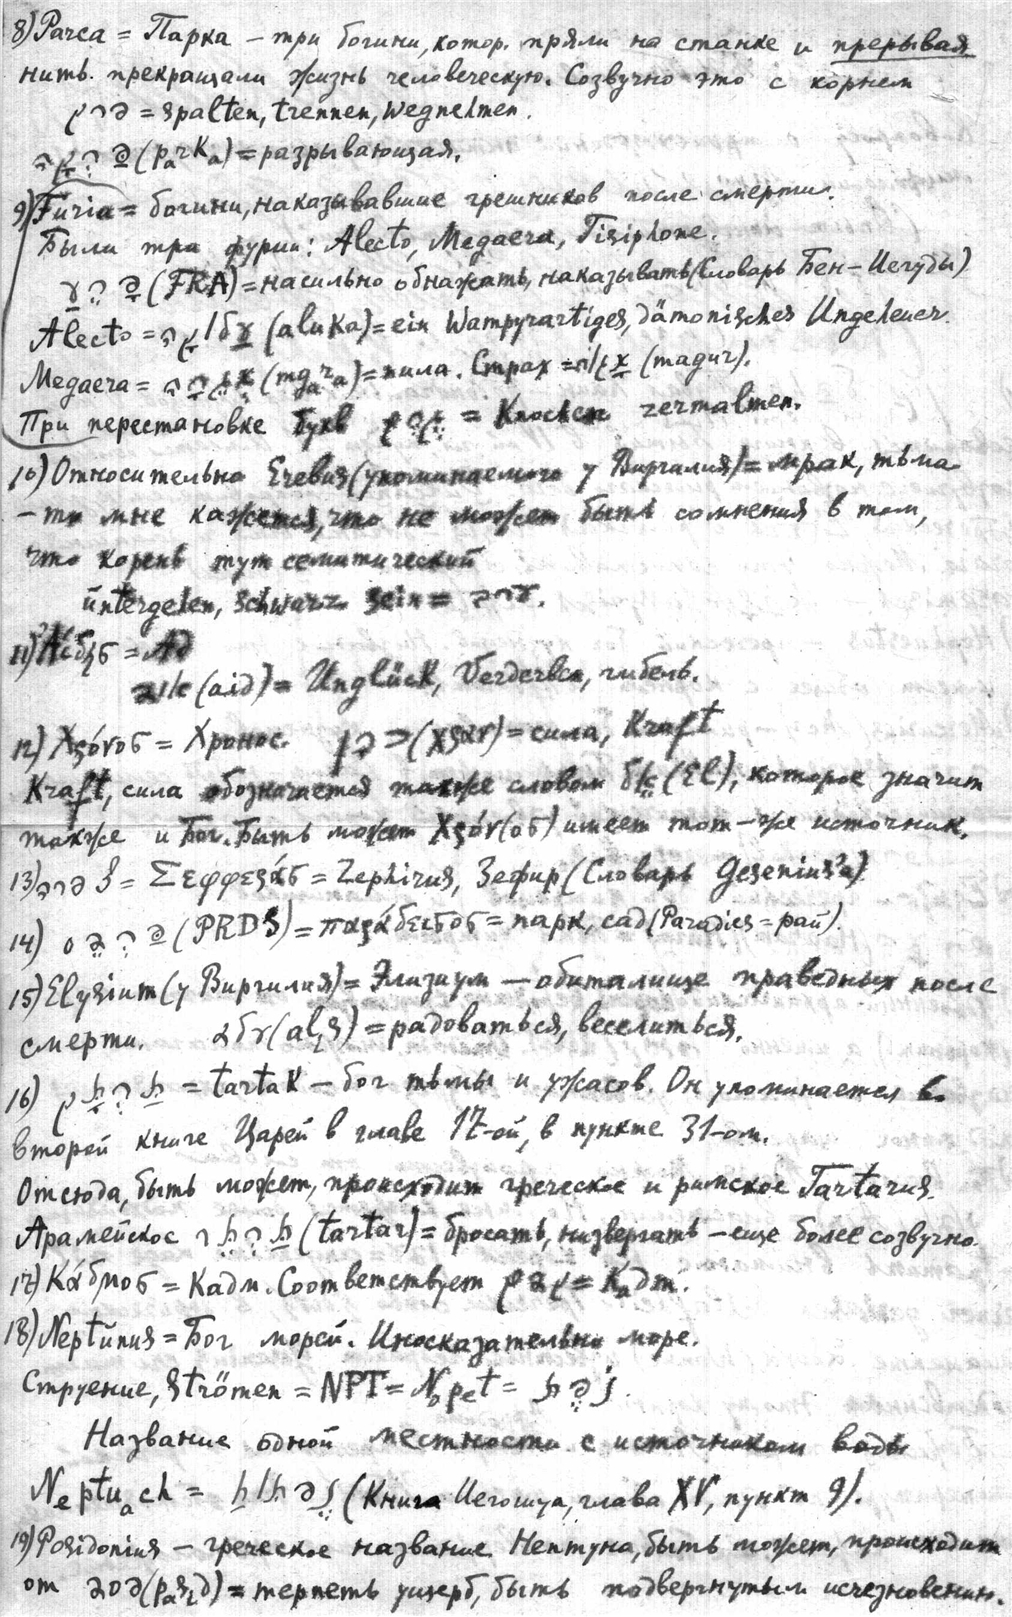 8) Parca = Парка – три богини, котор. пряли на станке и прерывая
нить, прекращали жизнь человеческую. Созвучно это с корнем
פרק = spalten, trennen, wegnehmen.
פרקה (parka) = разрывающая.
9) Furia = богини, наказывавшие грешников после смерти.
Были три фурии: Alecto, Megaera, Tisiphone.
פרע (FRA) = насильно обнажать, наказывать (Словарь Бен-Иегуды)
Alecto = עלוקה (aluka) = ein Wampyrartiges, dämonisches Ungeheuer.
Megaera = מגרה (mgara) = пила. Страх = מגור (magur).
При перестановке букв גרם = Knochen zermalmen.
10) Относительно Erebus (упоминаемого у Виргилия) = мрак, тьма
– то мне кажется, что не может быть сомнения в том,
что корень тут семитический
untergehen, schwarz sein = ערב.
11) Ἀίδης = Ад
איד (aid) = Unglück, Verderben, гибель.
12) Χρόνος = Хронос. כרן (χραν) = сила, Kraft
Kraft, сила обозначается также словом אל (El), которое значит
также и Бог. Быть может Χρόν(ος) имеет тот-же источник.
13) צפרה = Σεφφεράς = Zephirus, Зефир (Словарь Gesenius'a)
14) פרדס (PRDS) = παράδεισος = парк, сад (Paradies = рай).
15) Elysium (у Виргилия) = Элизиум – обиталище праведных после
смерти. עלז (aliz) = радоваться, веселиться.
16) תרתק = tartak – бог тьмы и ужасов. Он упоминается во
второй книге Царей в главе 17-ой, в пункте 31-ом.
Отсюда, быть может, происходит греческое и римское Tartarus.
Арамейское תרתר (tartar) = бросать, низвергать – еще более созвучно.
17) Κάδμος = Кадм. Соответствует קדם = Kadm.
18) Neptunus = Бог морей. Иносказательно море.
Струение, strömen = NPT = Nopet = נפת.
Название одной местности с источником воды
Neptuach = נפתוח (Книга Иегошуа, глава XV, пункт 9).
19) Posidonius – греческое название Нептуна, быть может, происходит
от פסד (pasid) = терпеть ущерб, быть подвергнутым исчезновению.